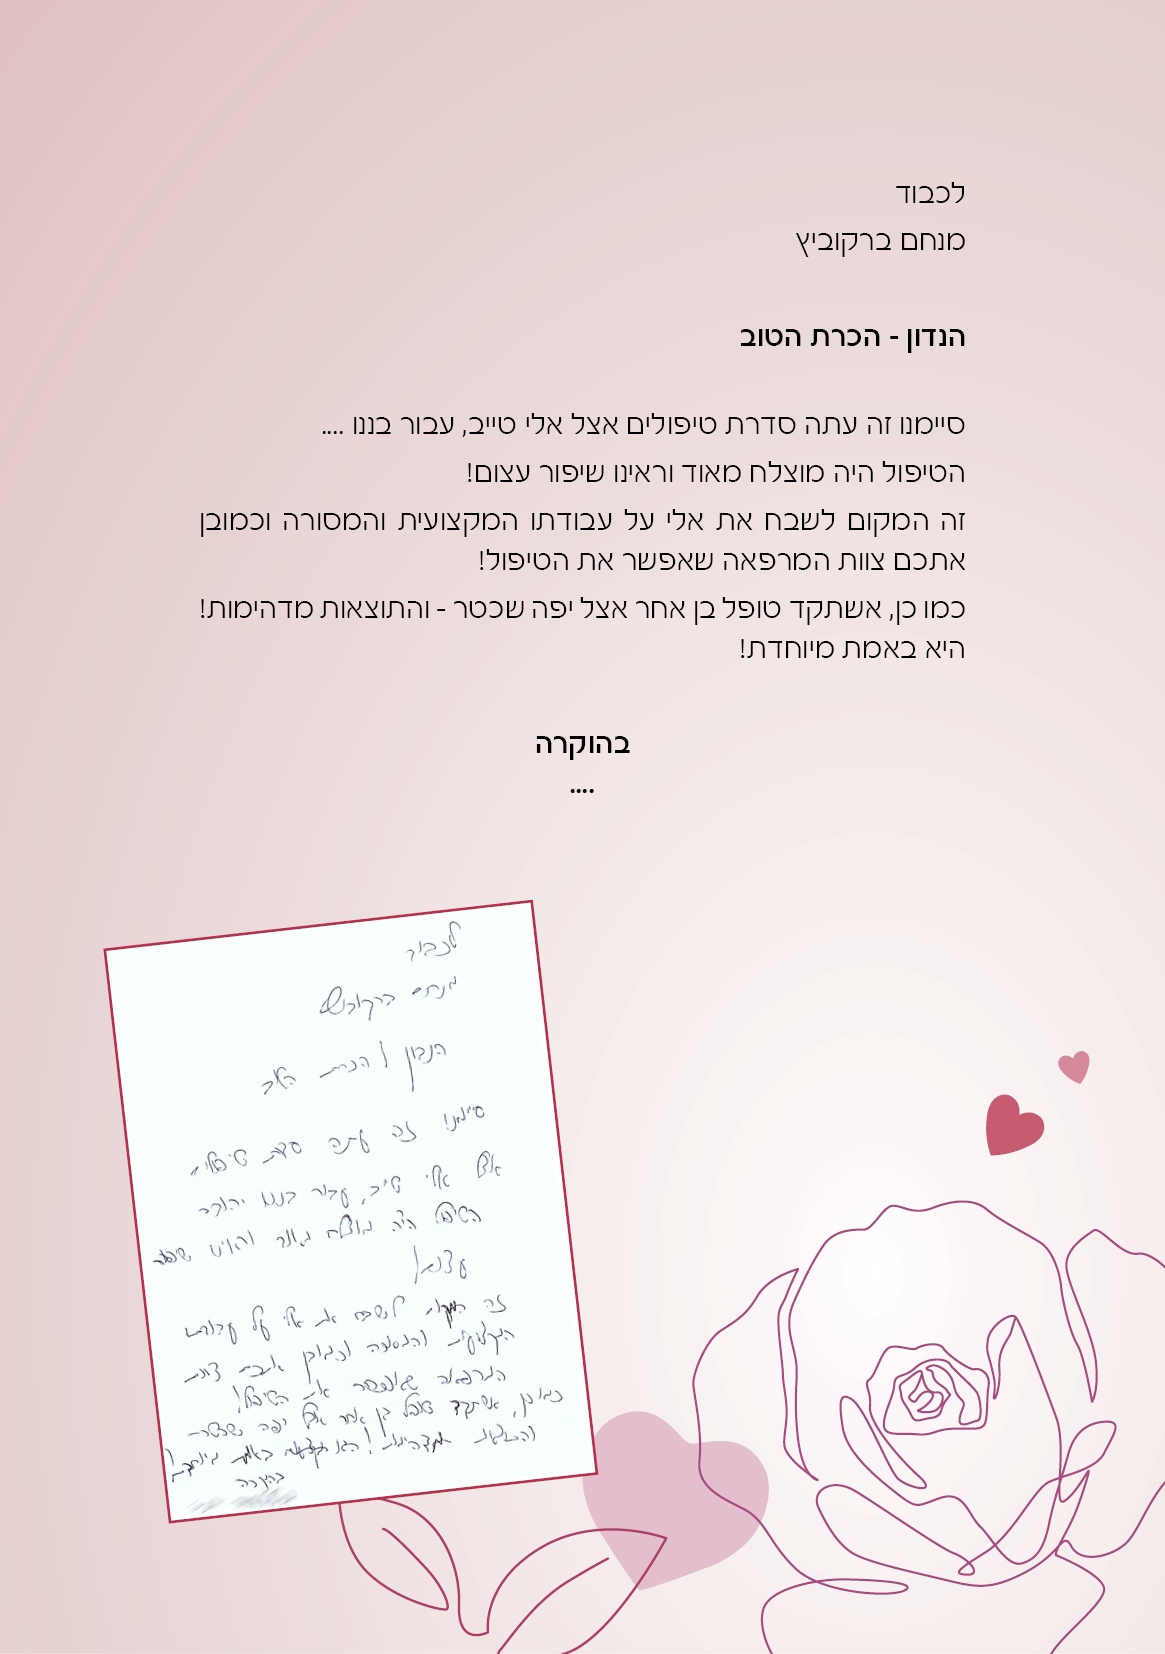 לכבוד
מנחם ברקוביץ
הנדון - הכרת הטוב
סיימנו זה עתה סדרת טיפולים אצל אלי טייב, עבור בננו ....
הטיפול היה מוצלח מאוד וראינו שיפור עצום!
זה המקום לשבח את אלי על עבודתו המקצועית והמסורה וכמובן
אתכם צוות המרפאה שאפשר את הטיפול!
כמו כן, אשתקד טופל בן אחר אצל יפה שכטר - והתוצאות מדהימות!
היא באמת מיוחדת!
בהוקרה
....
לכבוד
מנחם ברקוביץ
הנדון / הכרת הטוב
סיימנו זה עתה סדרת טיפולים
אצל אלי טייב, עבור בננו יהודה
הטיפול היה מוצלח מאוד וראינו שיפור
עצום!
זה המקום לשבח את אלי על עבודתו
המקצועית והמסורה וכמובן אתכם צוות
המרפאה שאפשר את הטיפול!
כמו כן, אשתקד טופל בן אחר אצל יפה שכטר -
והתוצאות מדהימות! היא באמת מיוחדת!
בהוקרה